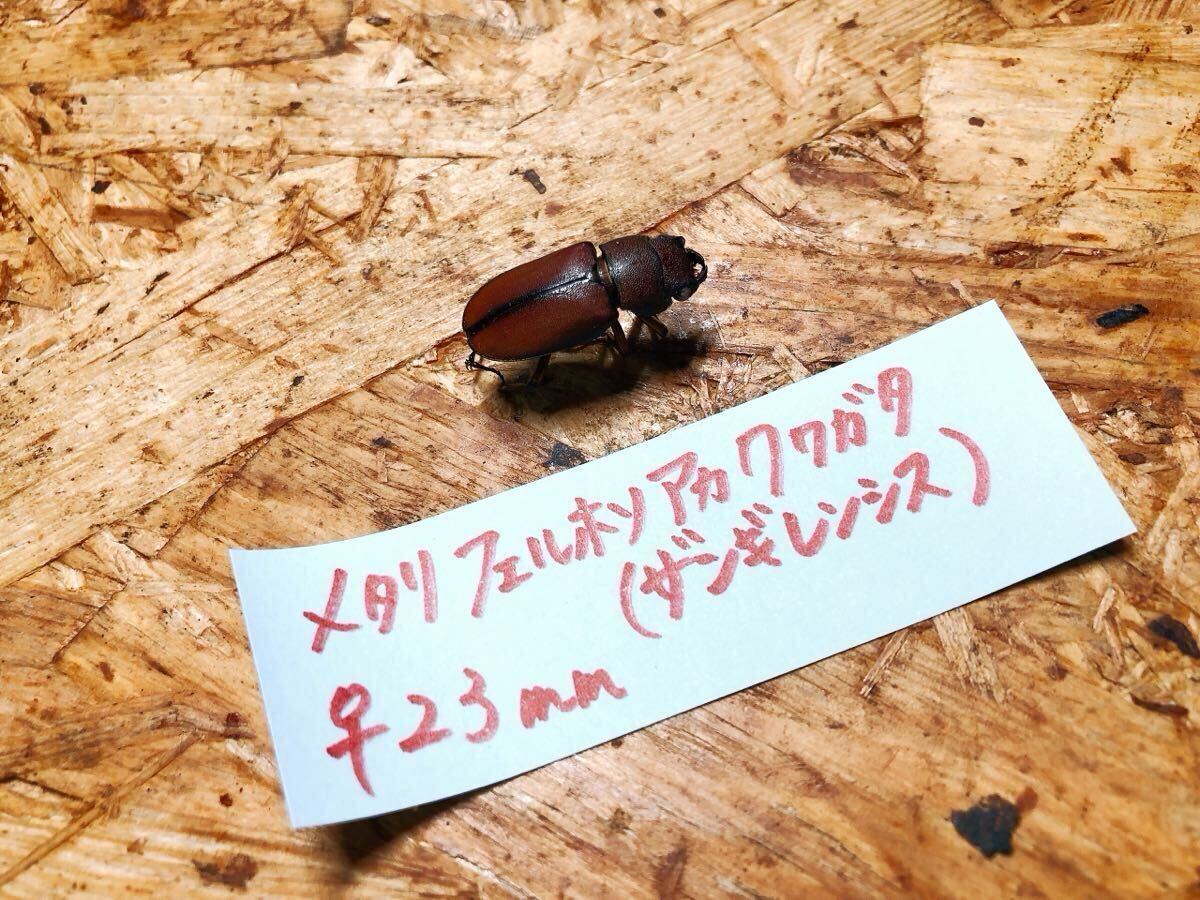 メタリフェルホソアカクワガタ
(ザンギレンシス)
♀23mm